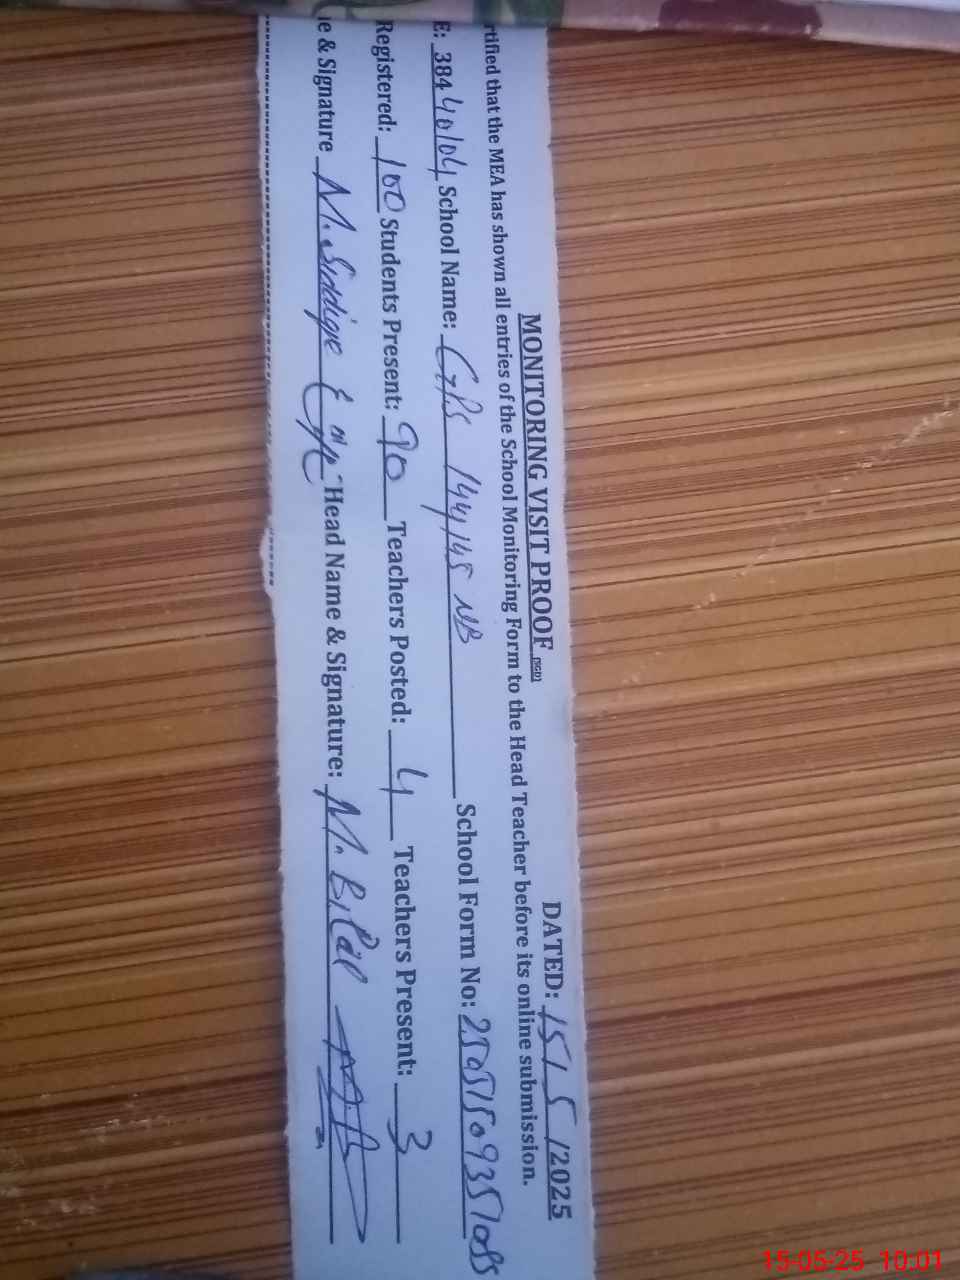 MONITORING VISIT PROOF (SGD) DATED: 15/5/2025
rtified that the MEA has shown all entries of the School Monitoring Form to the Head Teacher before its online submission.
E: 38440104 School Name: GPS 144/145 NB School Form No: 25051509351085
Registered: 100 Students Present: 90 Teachers Posted: 4 Teachers Present: 3
e & Signature M. Siddique Head Name & Signature: M. Bilal
15-05-25 10:01